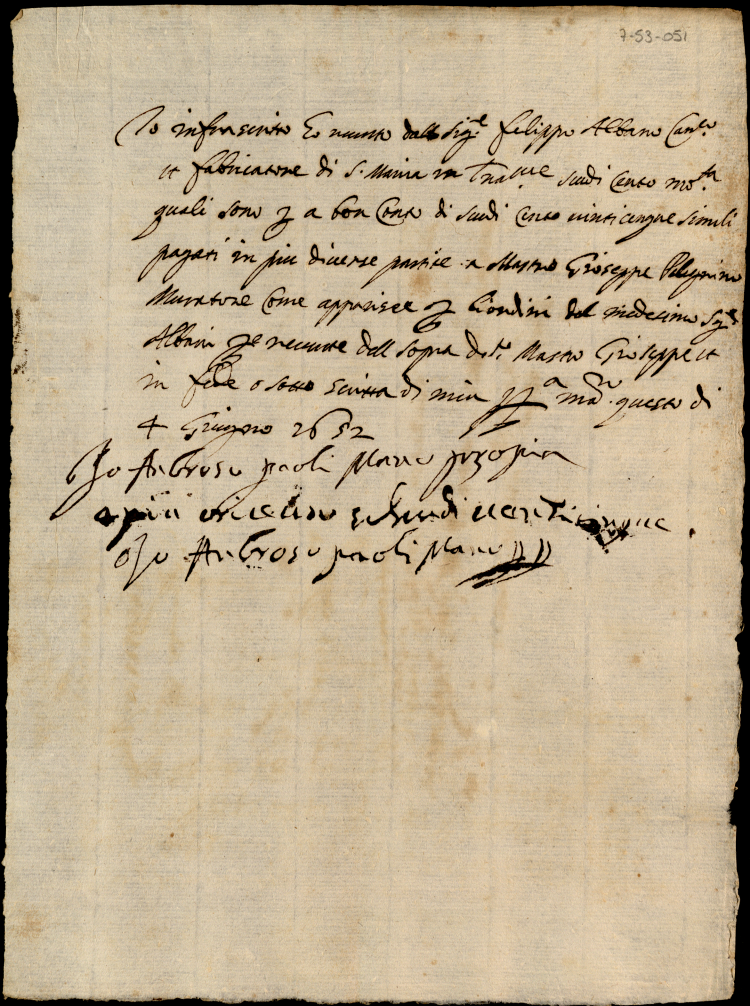 7-53-051
Io infrascritto ho riceuto dall Sig.r Filippo Albano Can.co
et fabricatore di S. Maria in scudi cento mo.ta
quali sono p a bon conto di scudi cento vinticinque simili
pagati in più diverse partite a Mastro Gioseppe Pelegrino
Muratore come apparisce p li ordini del medesimo Sig.r
Albani p e receute dall sopra d.to Mastro Gioseppe et
in fede o sotto scritta di mia p p a ma questo di
4 Giugno 1652
Io Anbroso paoli Mano propia
e più o riceuuto schudi uenticinque
Io Anbroso paoli Mano pp